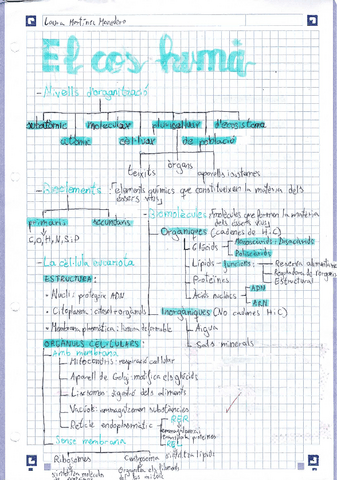 Laura Martínez
El cos humà
- Nivells d'organització
subatòmic molecular pluricel·lular d'ecosistema
atòmic cel·lular de població
teixits òrgans aparells i sistemes
- Bioelements: elements químics que constitueixen la matèria dels éssers vius
primaris secundaris
C, O, H, N, S i P
- Biomolècules: molècules que formen la matèria dels éssers vius
Orgàniques (cadenes de H i C)
Glúcids Monosacàrids i Disacàrids
Polisacàrids
Lípids - funcions: Reserva
Reguladora
Estructural
Proteïnes
Àcids nucleics ADN
ARN
Inorgàniques (No cadenes H i C)
Aigua
Sals minerals
- La cèl·lula eucariota
ESTRUCTURA:
· Nucli: protegeix ADN
· Citoplasma: citosol + orgànuls
· Membrana plasmàtica:
ORGÀNULS CEL·LULARS:
Amb membrana
Mitocondris: respiració cel·lular
Aparell de Golgi: modifica els glúcids
Lisosoma: digestió dels aliments
Vacúol: emmagatzemen substàncies
Reticle endoplasmàtic: RER
proteïnes
REL
lípids
Sense membrana
Ribosomes Centrosoma